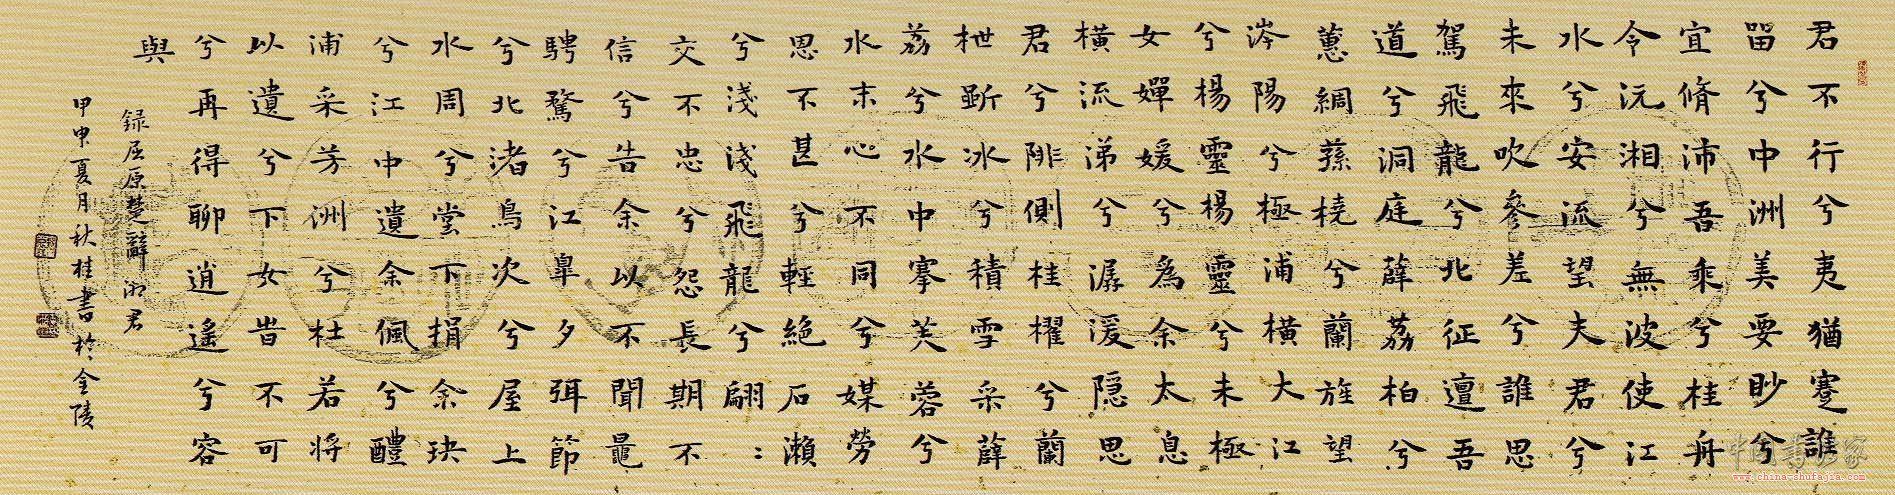 君不行兮夷猶蹇誰
留兮中洲美要眇兮
宜脩沛吾乘兮桂舟
令沅湘兮無波使江
水兮安流望夫君兮
未來吹參差兮誰思
駕飛龍兮北征邅吾
道兮洞庭薜荔柏兮
蕙綢蓀橈兮蘭旌望
涔陽兮極浦橫大江
兮楊靈楊靈兮未極
女嬋媛兮為余太息
橫流涕兮潺湲隱思
君兮陫側桂櫂兮蘭
枻斲冰兮積雪采薜
荔兮水中搴芙蓉兮
水末心不同兮媒勞
思不甚兮輕絕石瀨
兮淺淺飛龍兮翩〻
交不忠兮怨長期不
信兮告余以不聞鼂
騁騖兮江皋夕弭節
兮北渚鳥次兮屋上
水周兮堂下捐余玦
兮江中遺余佩兮醴
浦采芳洲兮杜若將
以遺兮下女旹不可
兮再得聊逍遙兮容
與
録屈原楚辭湘君
甲申夏月秋桂書於金陵
中国书法家
www.china-shufajia.com